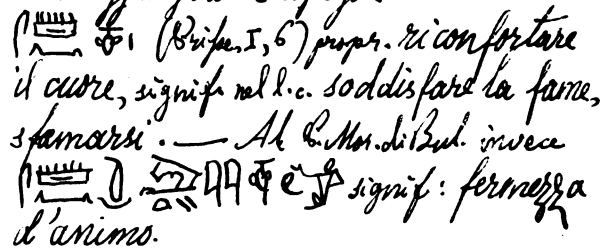 𓋴𓏠𓈖 𓄣𓏤 (Prisse, I, 6) propr. riconfortare
il cuore, signif. nel l. c. soddisfare la fame,
sfamarsi. — Al P. Mor. di Bul. invece
signif: fermezza
d'animo.